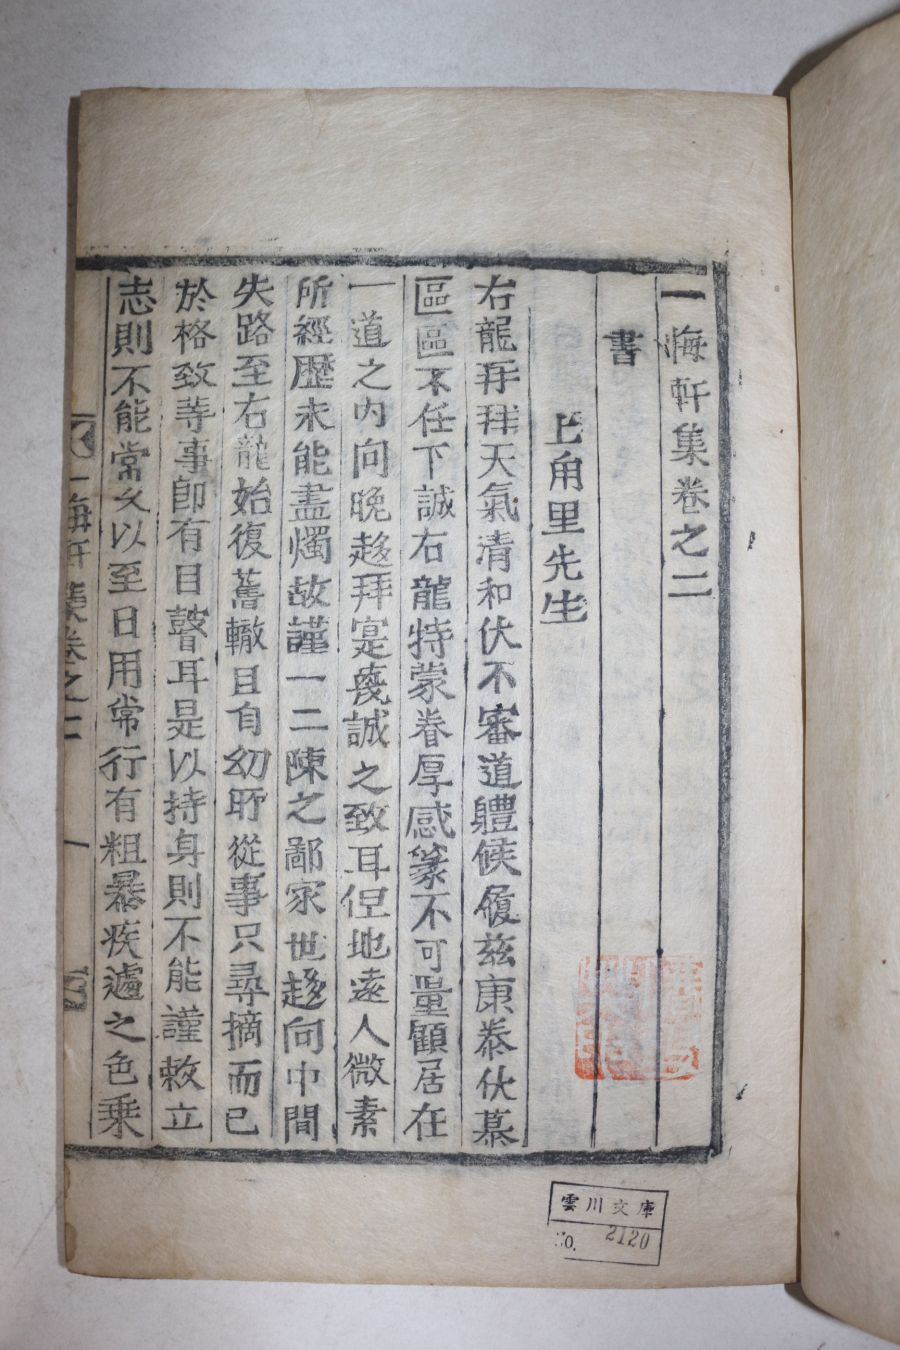 一悔軒集卷之二
書
上角里先生
右龍再拜天氣清和伏不審道體候履玆康泰伏慕
區區不任下誠右龍特蒙眷厚感篆不可量顧居在
一道之內向晩趍拜寔羡誠之致耳但地遠人微素
所經歷未能盡燭故謹一二陳之鄙家世趍向中間
失路至右龍始復舊轍且自幼所從事只尋摘而已
於格致等事卽有目瞽耳是以持身則不能謹敕立
志則不能常久以至日用常行有粗暴疾遽之色乗
一悔軒集卷之二
一
雲川文庫
No. 2120